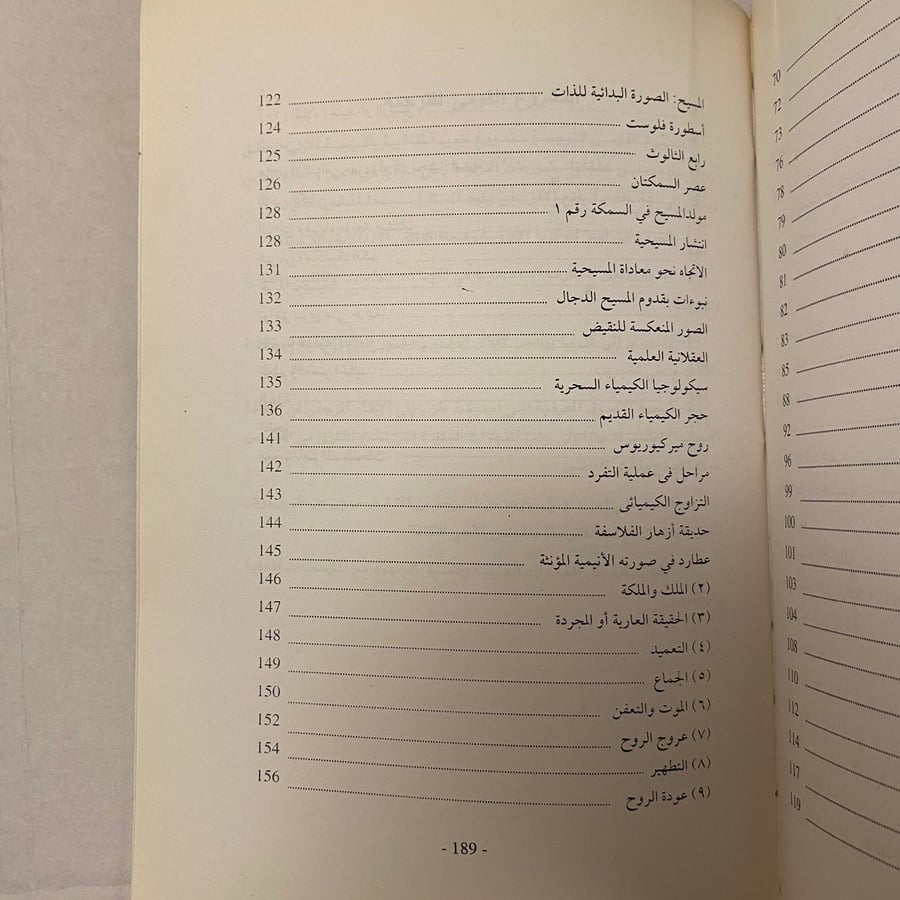 المسيح: الصورة البدائية للذات ........ 122
أسطورة فلوست ........ 124
رابع الثالوث ........ 125
عصر السمكتان ........ 126
مولدالمسيح في السمكة رقم ١ ........ 128
انتشار المسيحية ........ 128
الاتجاه نحو معاداة المسيحية ........ 131
نبوءات بقدوم المسيح الدجال ........ 132
الصور المنعكسة للنقيض ........ 133
العقلانية العلمية ........ 134
سيكولوجيا الكيمياء السحرية ........ 135
حجر الكيمياء القديم ........ 136
روح ميركيوريوس ........ 141
مراحل فى عملية التفرد ........ 142
التزاوج الكيميائى ........ 143
حديقة أزهار الفلاسفة ........ 144
عطارد في صورته الأنيمية المؤنثة ........ 145
(٢) الملك والملكة ........ 146
(٣) الحقيقة العارية أو المجردة ........ 147
(٤) التعميد ........ 148
(٥) الجماع ........ 149
(٦) الموت والتعفن ........ 150
(٧) عروج الروح ........ 152
(٨) التطهير ........ 154
(٩) عودة الروح ........ 156
- 189 -
70
72
73
76
78
79
80
81
82
83
85
88
92
96
99
100
101
103
104
108
110
112
114
117
119